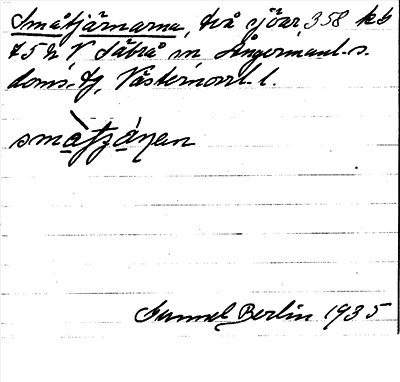 Småtjärnarna, två sjöar, 358 kb
75 h, V Säbrå sn, Ångermanl. s.
doms. tg, Västernorrl. l.
småtjáṇan
Samuel Berlin 1935